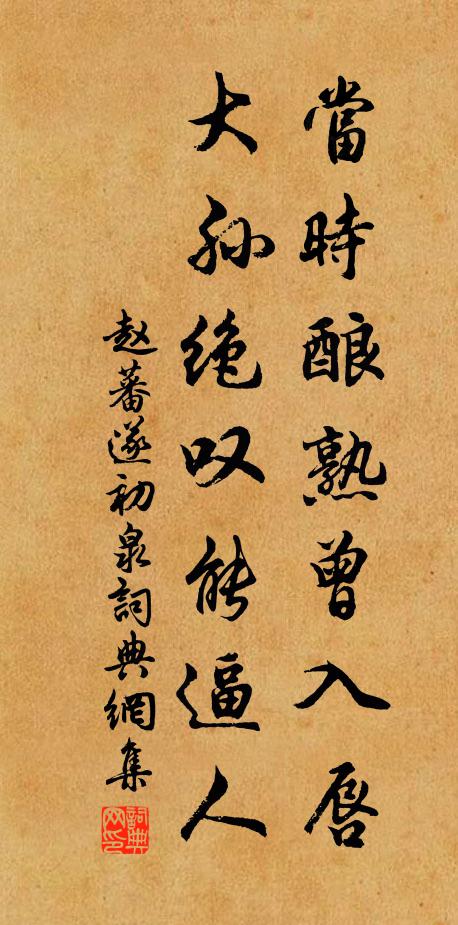 當時酿熟曾入唇
大孙绝叹能逼人
赵蕃遂初泉詞典網集
詞典网印